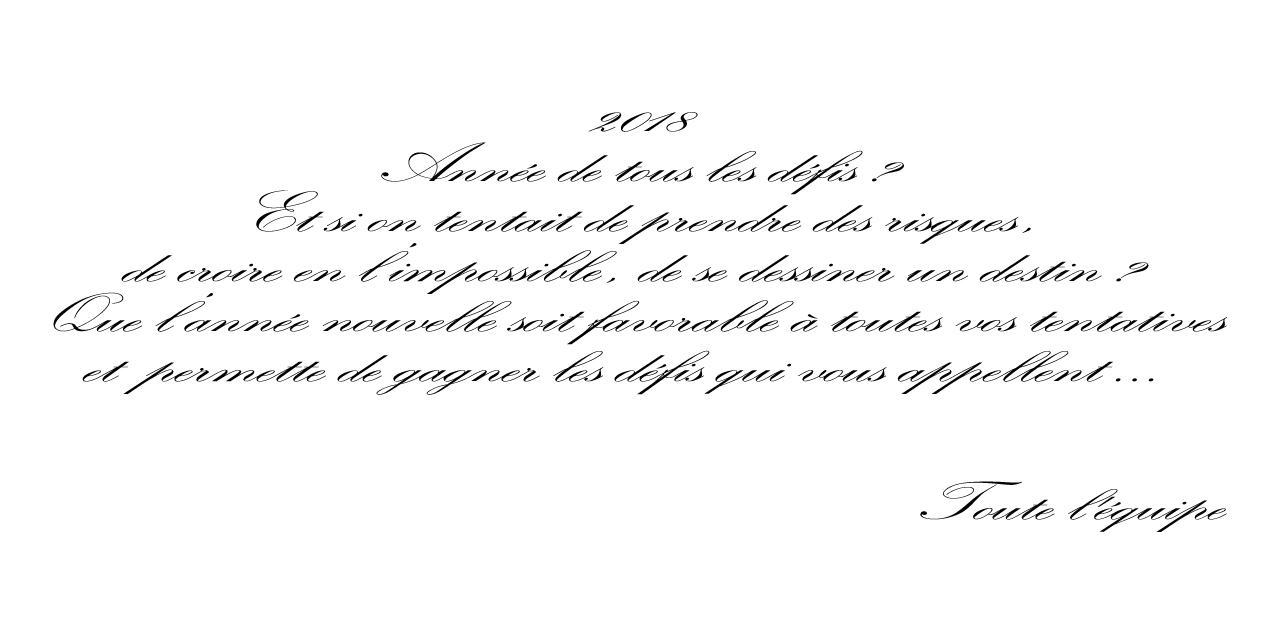 2018
Année de tous les défis ?
Et si on tentait de prendre des risques,
de croire en l'impossible, de se dessiner un destin ?
Que l'année nouvelle soit favorable à toutes vos tentatives
et permette de gagner les défis qui vous appellent ...
Toute l'équipe